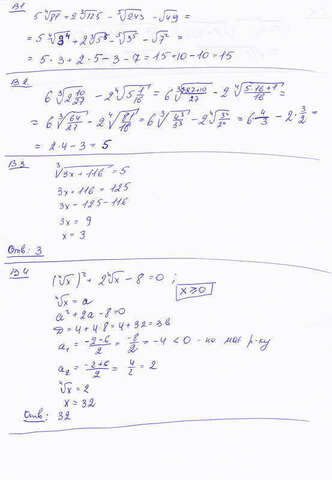 В1
5⁴√81 + 2³√125 − ⁵√243 − √49 =
= 5⁴√3⁴ + 2³√5³ − ⁵√3⁵ − √7² =
= 5·3 + 2·5 − 3 − 7 = 15+10−10 = 15
В2
6³√2 10/27 − 2⁴√5 1/16 =
= 6³√64/27 − 2⁴√81/16 = 6³√4³/3³ − 2⁴√3⁴/2⁴ = 6·4/3 − 2·3/2 =
= 2·4 − 3 = 5
В3
³√3x + 116 = 5
3x + 116 = 125
3x = 125 − 116
3x = 9
x = 3
Отв: 3
В4
(⁴√x)² + 2⁴√x − 8 = 0 ; x ≥ 0
⁴√x = a
a² + 2a − 8 = 0
D = 4 + 4·8 = 4 + 32 = 36
a₁ = −2−6/2 = −8/2 = −4 < 0
a₂ = −2+6/2 = 4/2 = 2
⁴√x = 2
x = 32
Отв: 32